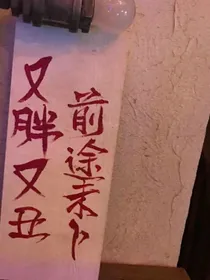 又胖又丑
前途未卜